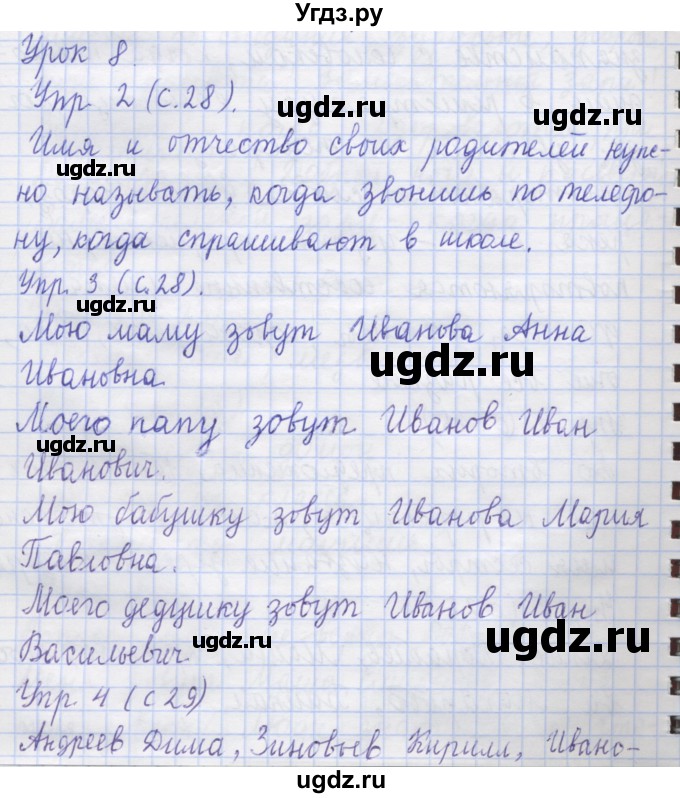 Угдз.ру
Урок 8.
Упр. 2 (с.28).
ugdz.ru
ugdz.ru
Имя и отчество своих родителей нуж-
ugdz.ru
но называть, когда звонишь по телефо-
ну, когда спрашивают в школе.
Упр. 3 (с.28).
ugdz.ru
Мою маму зовут Иванова Анна
ugdz.ru
Ивановна.
Моего папу зовут Иванов Иван
ugdz.ru
Иванович.
Мою бабушку зовут Иванова Мария
ugdz.ru
ugdz.ru
Павловна.
Моего дедушку зовут Иванов Иван
ugdz.ru
ugdz.ru
Васильевич.
Упр. 4 (с 29)
Андреев Дима, Зиновьев Кирилл, Ивано-
ugdz.ru